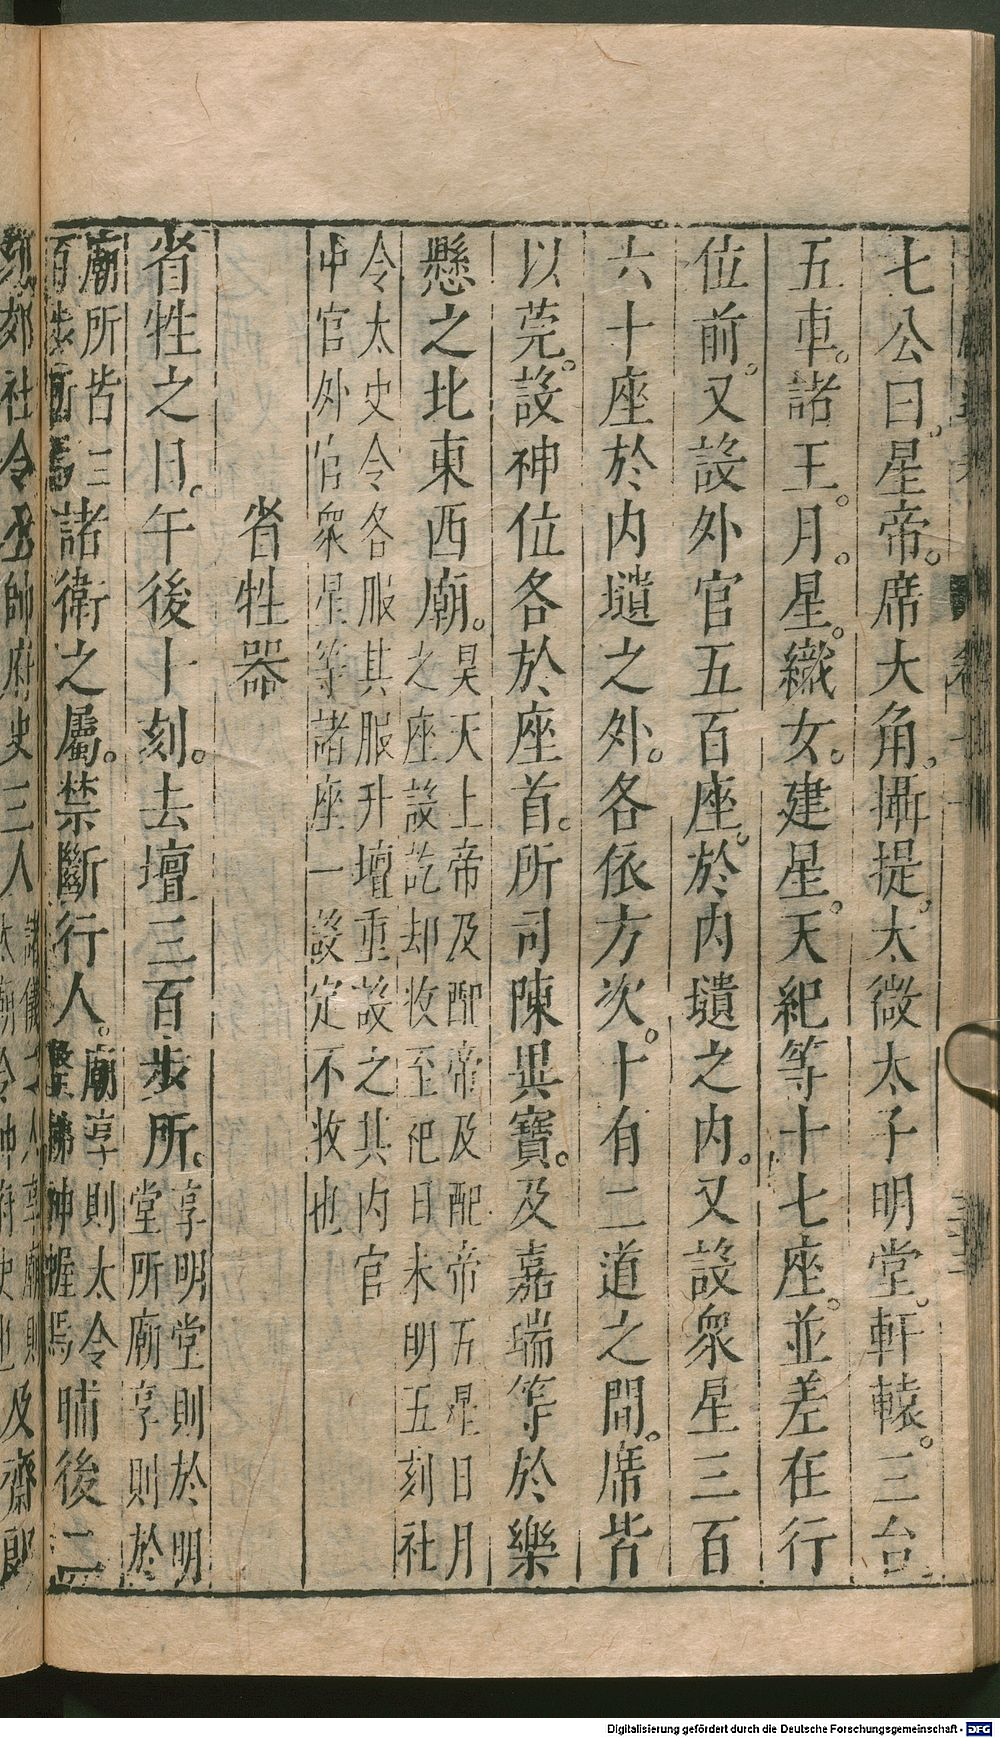 七公曰。星帝。席大角。攝提。太微太子明堂。軒轅。三台
五車。諸王。月。星。織女。建星。天紀等十七座。並差在行
位前。又設外官五百座。於内壝之内。又設衆星三百
六十座於内壝之外。各依方次。十有二道之間。席皆
以莞。設神位各於座首。所司陳異寶。及嘉瑞等於樂
懸之北東西廟。昊天上帝及配帝及配帝五星日月
之座設訖却收至祀日未明五刻社
令太史令各服其服升壇重設之其内官
中官外官衆星等諸座一設定不收也
省牲器
省牲之日。午後十刻。去壇三百步所。享明堂則於明
堂所廟享則於
廟所皆三
諸衛之屬。禁斷行人。廟享則太令
牲焉晡後二
郊社令丞帥府史三人諸儀二人享廟則
及齋郎
Digitalisierung gefördert durch die Deutsche Forschungsgemeinschaft - DFG